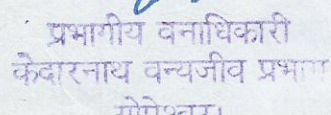 प्रभागीय वनाधिकारी
केदारनाथ वन्यजीव प्रभाग
गोपेश्वर।